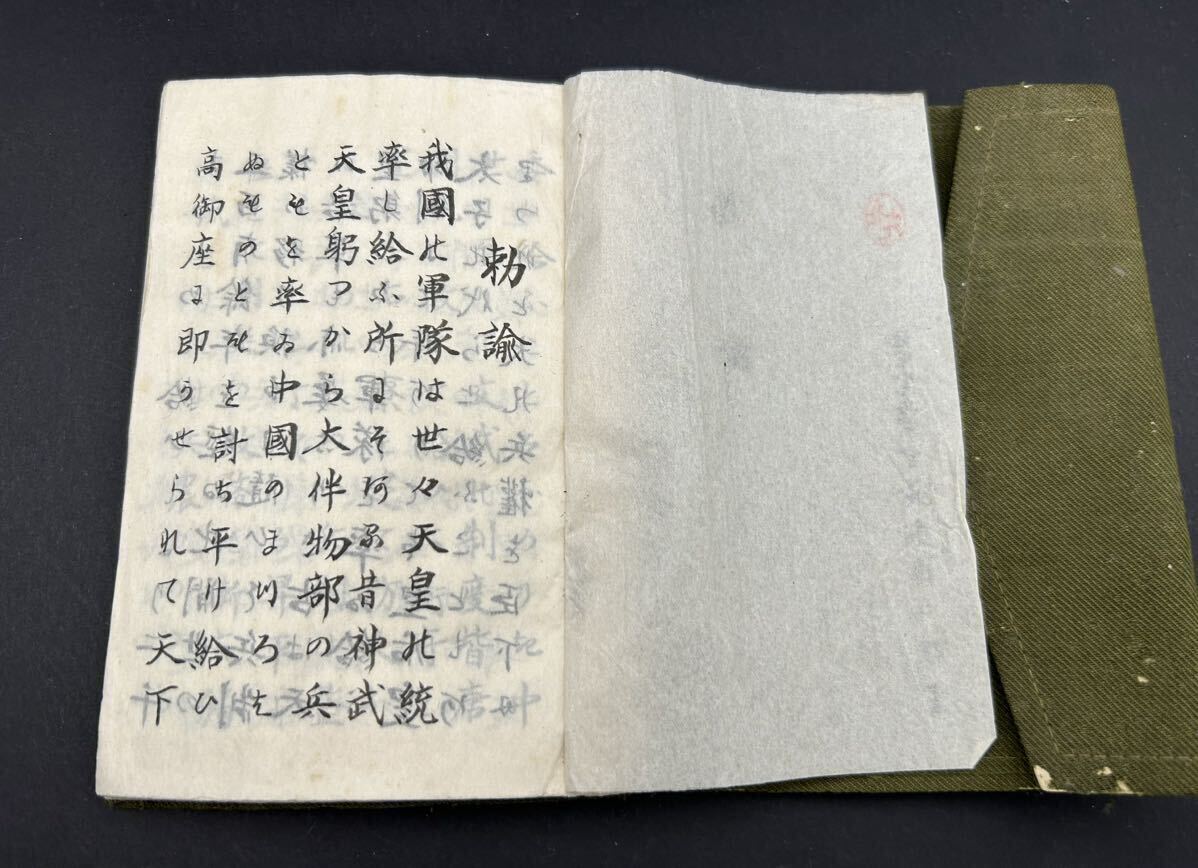 勅諭
我國の軍隊は世々天皇の統
率し給ふ所にそある昔神武
天皇躬つから大伴物部の兵
ともを率ゐ中國のまつろは
ぬものともを討ち平け給ひ
高御座に即かせられて天下